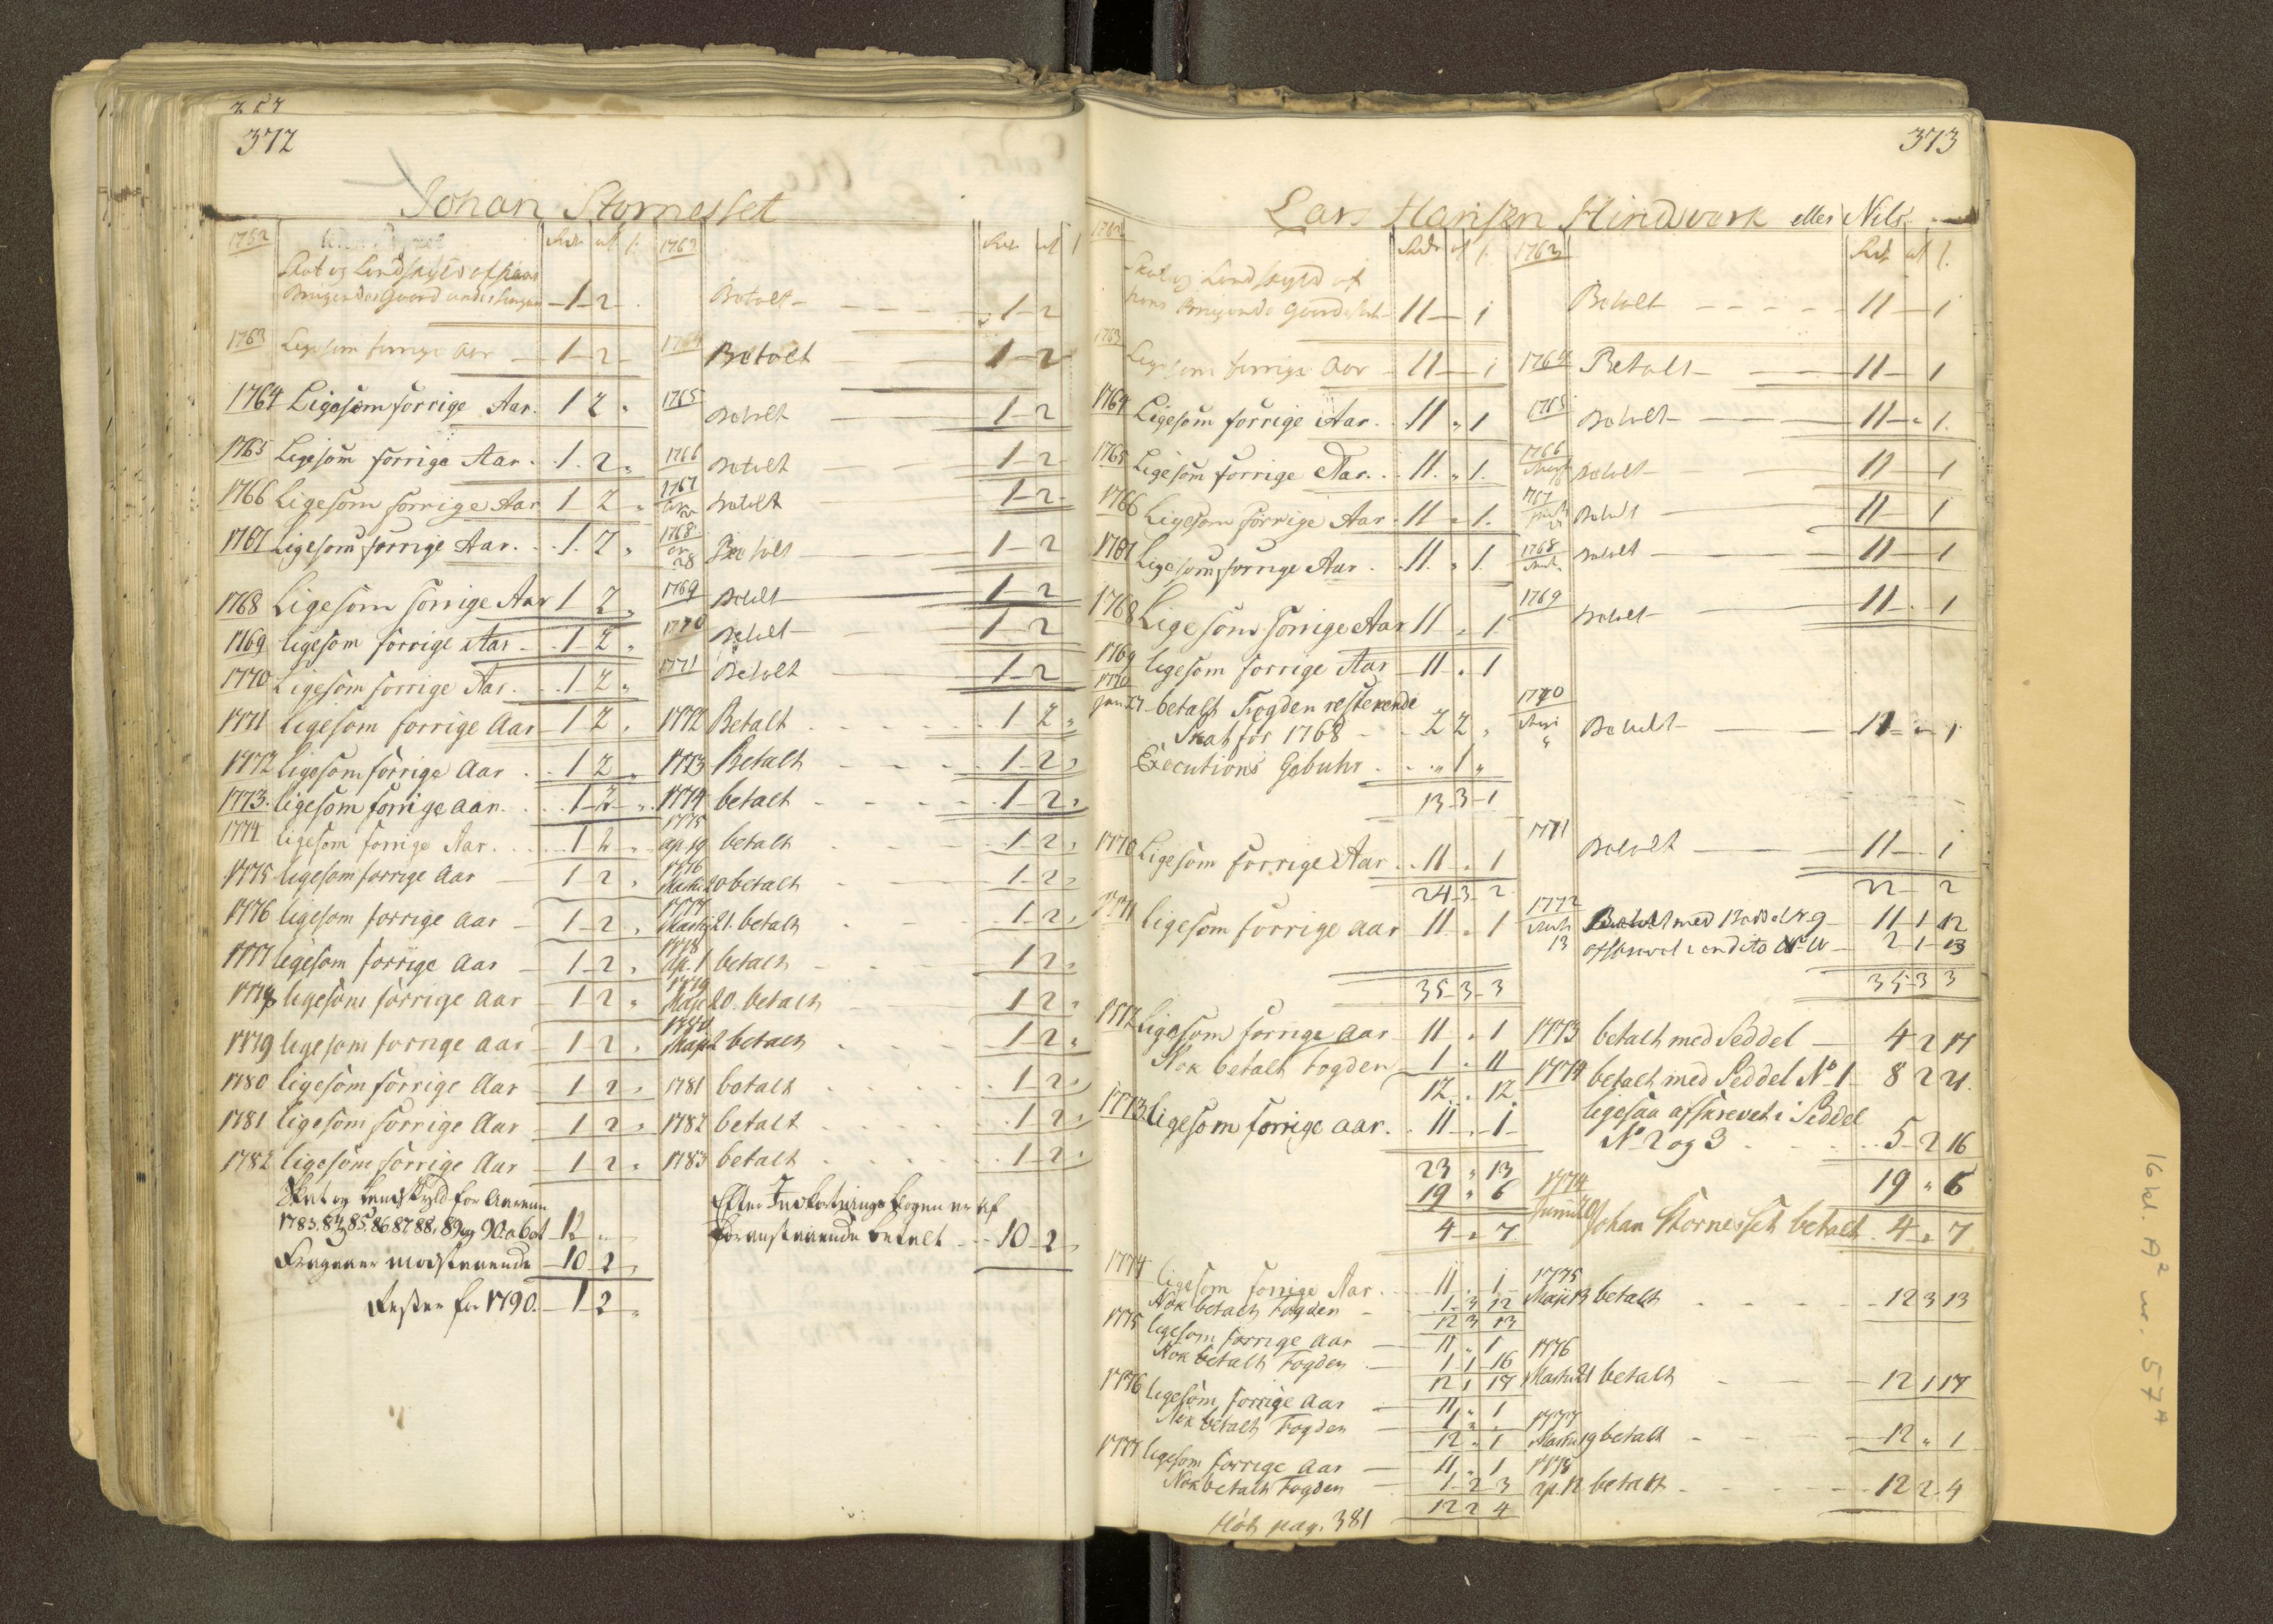 372
Johan Stornesset
1762 Rdr ort s.
Skat og Landskyld af hans
Brugende Gaard 1 - 2 -
1763 Ligesom forrige Aar 1 - 2 -
1764 Ligesom forrige Aar. 1 2 "
1765 Ligesom forrige Aar. 1. 2 "
1766 Ligesom forrige Aar 1 2 "
1767 Ligesom forrige Aar. 1. 2 "
1768 Ligesom forrige Aar 1 2 "
1769 ligesom forrige Aar 1 - 2 "
1770 Ligesom forrige Aar. 1 - 2 "
1771 ligesom forrige Aar 1 2 "
1772 ligesom forrige Aar 1 2 "
1773. ligesom forrige aar. 1 - 2 - "
1774 ligesom forrige Aar. 1 2 "
1775 ligesom forrige Aar 1 2 "
1776 ligesom forrige Aar 1 - 2 "
1777 ligesom forrige Aar 1 - 2 "
1778 ligesom forrige Aar 1 - 2 "
1779 ligesom forrige aar 1 - 2 "
1780 ligesom forrige Aar 1 2 "
1781 ligesom forrige Aar 1 2 "
1782 ligesom forrige Aar 1 - 2 "
Skat og Landskyld for Aarene
1783. 84 85. 86 87 88. 89 og 90. a 6 ort 12 "
Fragaaer modstaaende 10 - 2 "
Rester for 1790. 1 - 2 "
1763 Rdr ort s
Betalt 1 - 2
1764 Betalt 1 - 2
1765 Betalt 1 - 2
1766 Betalt 1 - 2
1767 betalt 1 - 2
1768 28 Betalt 1 - 2
1769 Betalt 1 - 2
1770 Betalt 1 - 2
1771 Betalt 1 - 2
1772 Betalt 1 2 "
1773 Betalt 1 - 2 "
1774 betalt 1 - 2 "
1775 ap. 19 betalt 1 - 2 "
1776 Martii 20 betalt 1 - 2 "
1777 Martij 21. betalt 1 - 2 "
1778 ap. 1 betalt 1 2 "
1779 Maji 20. betalt 1 2 "
1780 Maji 2 betalt 1 2 "
1781 betalt 1 2 "
1782 betalt 1 2 "
1783 betalt 1 - 2 "
Efter Indfordrings bogen er af
foranstaaende betalt 10 2 "
373
Lars Hansen Hindverk eller Nils
1762 Rdr ort s.
Skat og Landskyld af
hans Brugende Gaard 11 - 1
1763 Ligesom forrige Aar 11 - 1
1764 Ligesom forrige Aar. 11 " 1
1765 Ligesom forrige Aar. 11. " 1.
1766 Ligesom forrige Aar. 11 " 1.
1767 Ligesom forrige Aar. 11. " 1.
1768 Ligesom forrige Aar 11 " 1
1769 ligesom forrige Aar 11 " 1
1770 Jan 27 betalt Fogden resterende
Skat for 1768 2 2 "
Executions Gebuhr " 1 "
13 - 3 - 1
1770 Ligesom forrige Aar 11 " 1
24 3 - 2
1771 ligesom forrige aar 11 " 1
35 - 3 - 3
1772 ligesom forrige aar 11 " 1
Nok betalt fogden 1 " 11
12 " 12
1773 ligesom forrige aar. 11 " 1
23 " 13
19 " 6
4 " 7
1774 ligesom forrige Aar 11 " 1
Nok betalt fogden 1 - 3 12
12 3 13
1775 ligesom forrige aar 11 " 1
Nok betalt fogden 1 1 16
12 1 17
1776 ligesom forrige aar 11 " 1
Nok betalt fogden 1 " "
12 " 1
1777 ligesom forrige aar 11 " 1
Nok betalt fogden 1 - 2 3
12 2 4
pag. 381
1763 Rdr ort s.
Betalt 11 - 1
1764 Betalt 11 - 1
1765 Betalt 11 - " 1.
1766 Betalt 11 - 1
1767 Betalt 11 - 1
1768 Betalt 11 - 1
1769 Betalt 11 " 1
1770 Betalt 11 - " - 1
1771 Betalt 11 - " 1
22 - 2
1772 13 Betalt med Seddel N. 9 11 1 12
afskrevet i en dito No. 10 2 1 13
35 - 3 3
1773 betalt med Seddel 4 2 17
1774 betalt med Seddel No 1 8 2 21.
ligesaa afskrevet i Seddel
No 2 og 3 5 - 2 16
19 " 6
1774 Johan Stornesset betalt 4 " 7
1775 Maji 13 betalt 12 3 13
1776 Martii 21 betalt 12 1 17
1777 Martii 19 betalt 12 " 1
1778 ap. 12 betalt 12 2 4
16 kl. A² nr. 57ᴬ